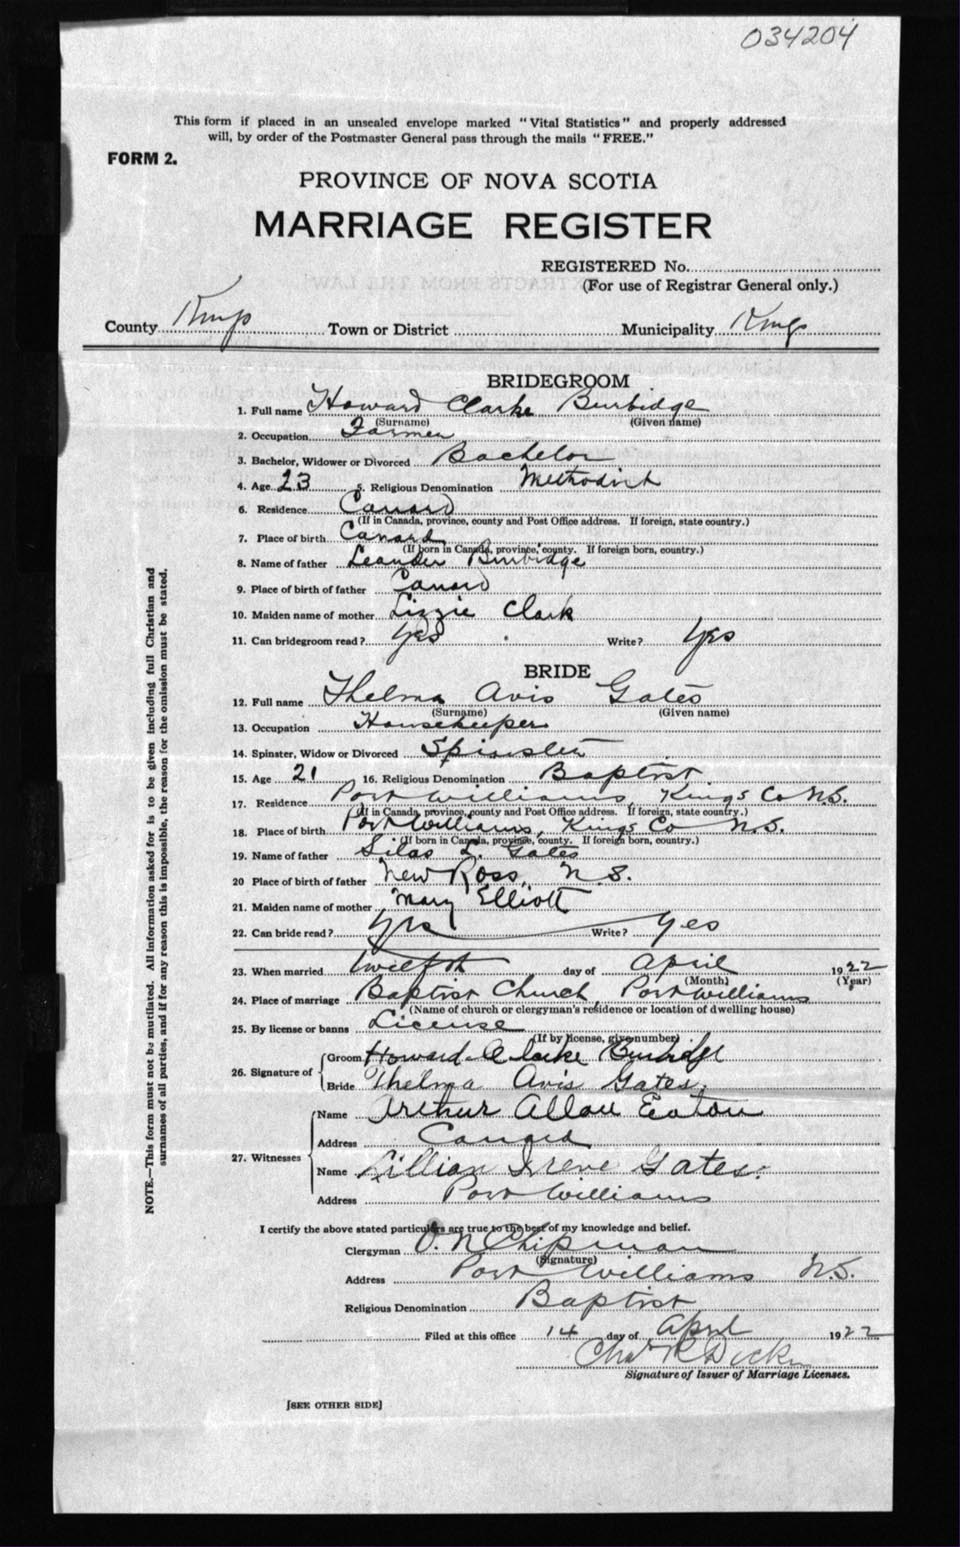 034204
This form if placed in an unsealed envelope marked "Vital Statistics" and properly addressed
will, by order of the Postmaster General pass through the mails "FREE."
FORM 2.
PROVINCE OF NOVA SCOTIA
MARRIAGE REGISTER
REGISTERED No.
(For use of Registrar General only.)
County Kings Town or District Municipality Kings
BRIDEGROOM
1. Full name Howard Clarke Burbidge
(Surname) (Given name)
2. Occupation Farmer
3. Bachelor, Widower or Divorced Bachelor
4. Age 23 5. Religious Denomination Methodist
6. Residence Canard
(If in Canada, province, county and Post Office address. If foreign, state country.)
7. Place of birth Canard
(If born in Canada, province, county. If foreign born, country.)
8. Name of father Leander Burbidge
9. Place of birth of father Canard
10. Maiden name of mother Lizzie Clark
11. Can bridegroom read? Yes Write? Yes
BRIDE
12. Full name Thelma Avis Gates
(Surname) (Given name)
13. Occupation Housekeeper
14. Spinster, Widow or Divorced Spinster
15. Age 21 16. Religious Denomination Baptist
17. Residence Port Williams, Kings Co N.S.
(If in Canada, province, county and Post Office address. If foreign, state country.)
18. Place of birth Port Williams, Kings Co N.S.
(If born in Canada, province, county. If foreign born, country.)
19. Name of father Silas L. Gates
20 Place of birth of father New Ross, N.S.
21. Maiden name of mother Mary Elliott
22. Can bride read? Yes Write? Yes
23. When married twelfth day of April 1922
(Month) (Year)
24. Place of marriage Baptist Church, Port Williams
(Name of church or clergyman's residence or location of dwelling house)
25. By license or banns License
(If by license, give number)
26. Signature of Groom Howard Clarke Burbidge
Bride Thelma Avis Gates.
27. Witnesses Name Arthur Allan Eaton
Address Canard
Name Lillian Irene Gates.
Address Port Williams
I certify the above stated particulars are true to the best of my knowledge and belief.
Clergyman O. N. Chipman
(Signature)
Address Port Williams N.S.
Religious Denomination Baptist
Filed at this office 14 day of April 1922
Chas R
Signature of Issuer of Marriage Licenses.
[SEE OTHER SIDE]
NOTE.—This form must not be mutilated. All information asked for is to be given including full Christian and
surnames of all parties, and if for any reason this is impossible, the reason for the omission must be stated.